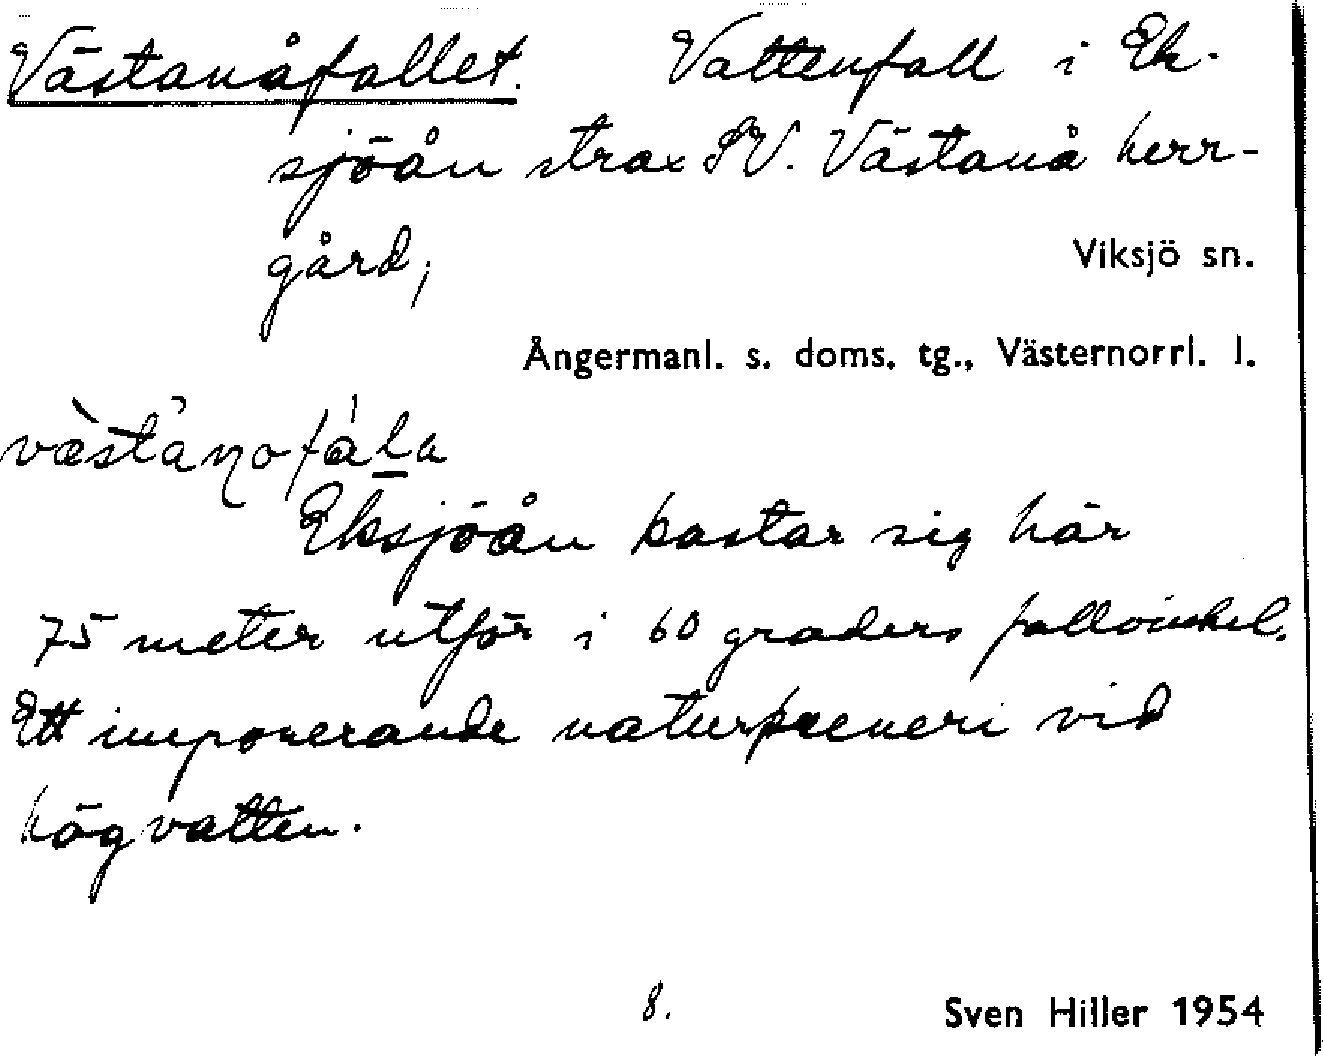 Västanåfallet. Vattenfall i Ek-
sjöån strax SV. Västanå herr-
gård,
Viksjö sn.
Ångermanl. s. doms. tg., Västernorrl. l.
Eksjöån kastar sig här
75 meter utför i 60 graders fallvinkel.
Ett imponerande natursceneri vid
högvatten.
8.
Sven Hiller 1954